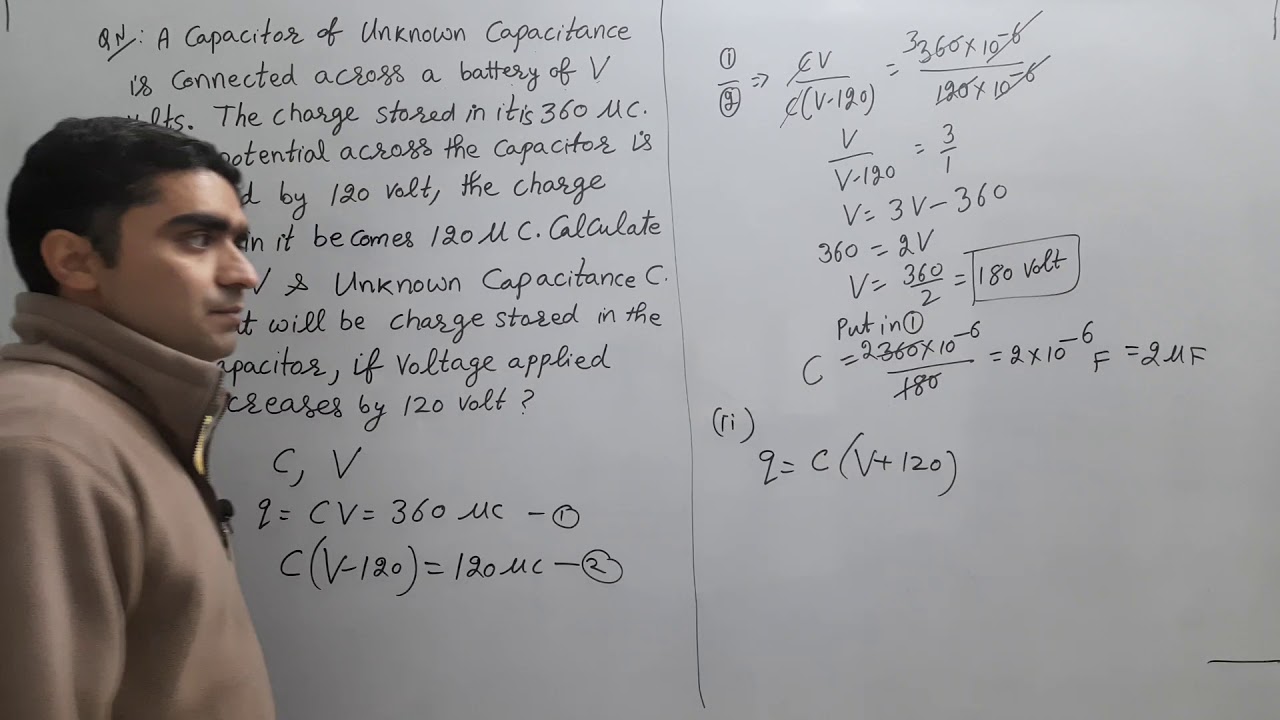 QN: A Capacitor of Unknown Capacitance
is Connected across a battery of V
lts. The charge stored in it is 360 μc.
potential across the capacitor is
d by 120 volt, the charge
in it becomes 120 μ C. Calculate
V & Unknown Capacitance C.
t will be charge stored in the
apacitor, if voltage applied
creases by 120 volt?
C, V
q = CV = 360 μc - ①
C(V-120) = 120 μc - ②
①/② => CV/C(V-120) = 3 360×10⁻⁶/120×10⁻⁶
V/V-120 = 3/1
V = 3V - 360
360 = 2V
V = 360/2 = 180 volt
Put in ①
C = 2 360×10⁻⁶/180 = 2×10⁻⁶ F = 2μF
(ii)
q = C(V+120)